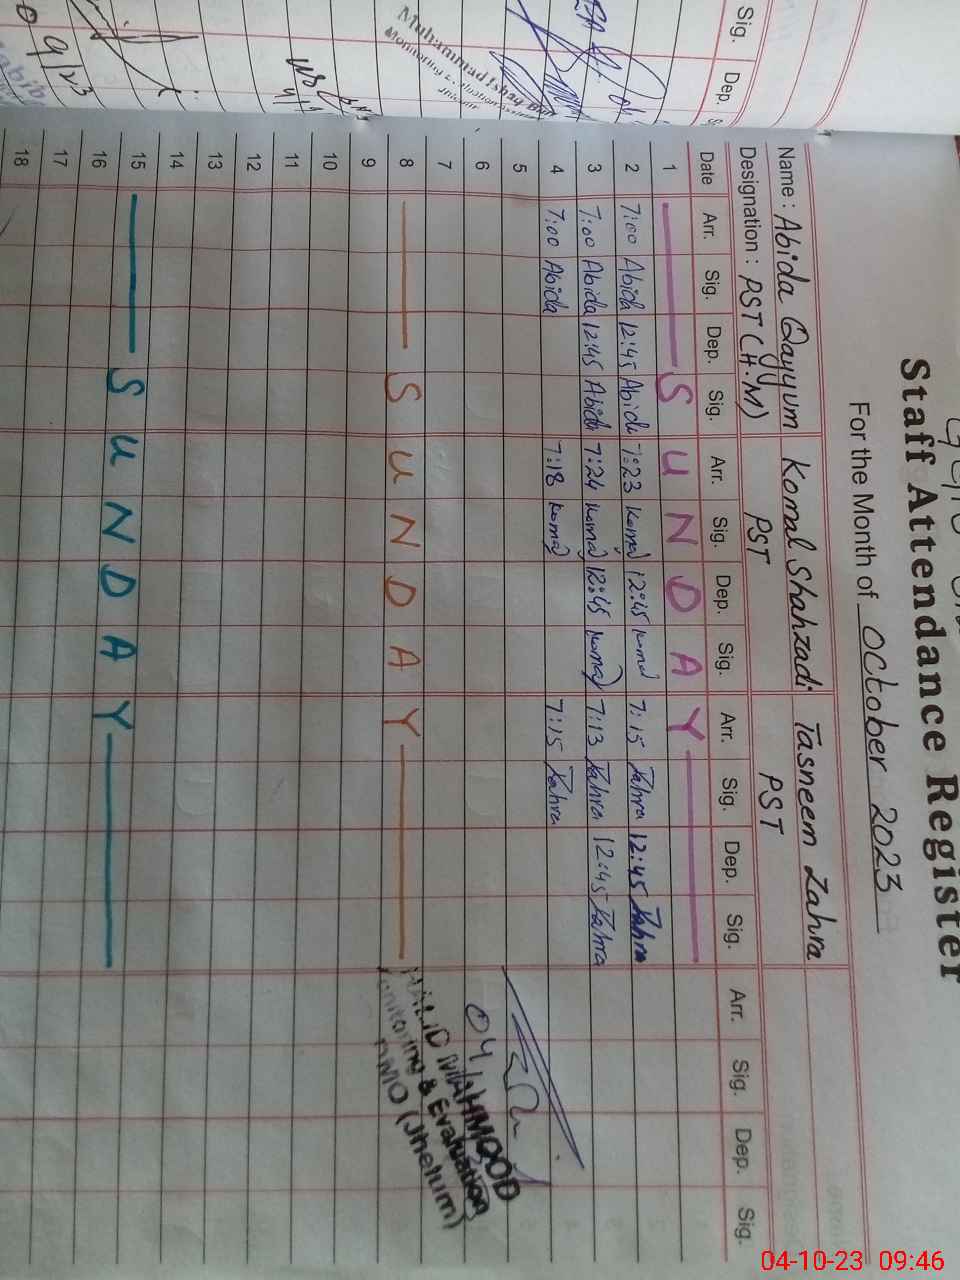 Staff Attendance Register
For the Month of October 2023
Name : Abida Qayyum Komal Shahzadi Tasneem Zahra
Designation : PST (H.M) PST PST
Date Arr. Sig. Dep. Sig. Arr. Sig. Dep. Sig. Arr. Sig. Dep. Sig. Arr. Sig. Dep. Sig.
1 SUNDAY
2 7:00 Abida 12:45 Abida 7:23 Komal 12:45 Komal 7:15 Zahra 12:45 Zahra
3 7:00 Abida 12:45 Abida 7:24 Komal 12:45 Komal 7:13 Zahra 12:45 Zahra
4 7:00 Abida 7:18 Komal 7:15 Zahra
5
6
7
8 SUNDAY
9
10
11
12
13
14
15 SUNDAY
16
17
18
04/
KHALID MAHMOOD
Monitoring & Evaluation
DMO (Jhelum)
Sig. Dep.
Muhammad Ishaq
9/23
04-10-23 09:46